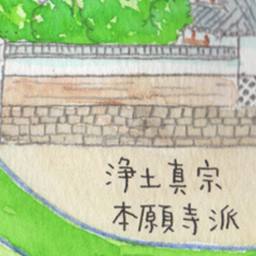 浄土真宗
本願寺派